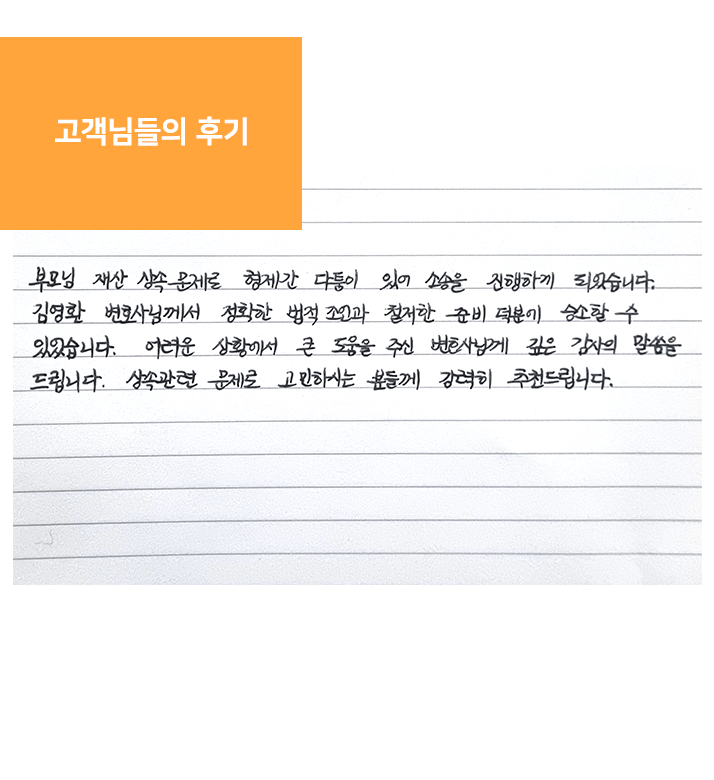 고객님들의 후기
부모님 재산 상속 문제로 형제간 다툼이 있어 소송을 진행하게 되었습니다.
김영환 변호사님께서 정확한 법적 조언과 철저한 준비 덕분에 승소할 수
있었습니다. 어려운 상황에서 큰 도움을 주신 변호사님께 깊은 감사의 말씀을
드립니다. 상속관련 문제로 고민하시는 분들께 강력히 추천드립니다.